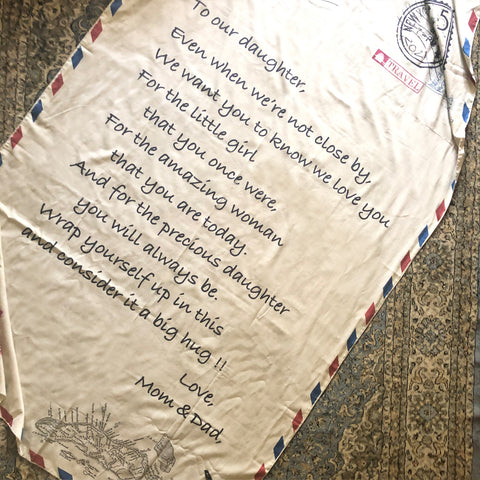 To our daughter,
Even when we're not close by,
We want you to know we love you
For the little girl
that you once were,
For the amazing woman
that you are today.
And for the precious daughter
you will always be.
Wrap yourself up in this
and consider it a big hug !!
Love,
Mom & Dad,
TRAVEL